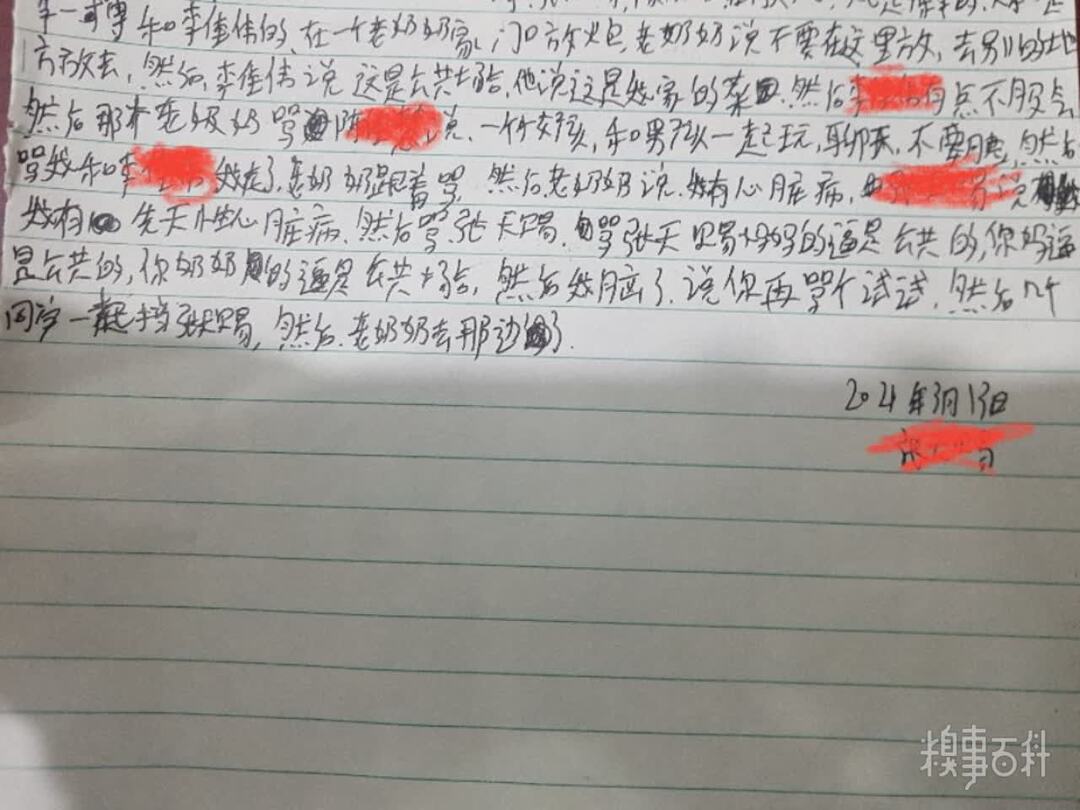 和李佳伟的,在一个老奶奶家,门口放火包,老奶奶说不要在这里放,去别的地
方放去,然后,李佳伟说这是公共场合,他说这是我家的菜,然后 有点不服气,
然后那个老奶奶骂 说,一个女孩,和男孩一起玩,聊天,不要脸,然后
骂我和李 我走了,老奶奶跟着骂,然后老奶奶说,我有心脏病, 说
我有 先天性心脏病,然后骂张天赐,骂张天赐妈妈的逼是公共的,你妈逼
是公共的,你奶奶的逼是公共场合,然后我 了,说你再骂个试试,然后几个
同学一起 张天赐,然后,老奶奶去那边了.
2021年3月13日
糗事百科